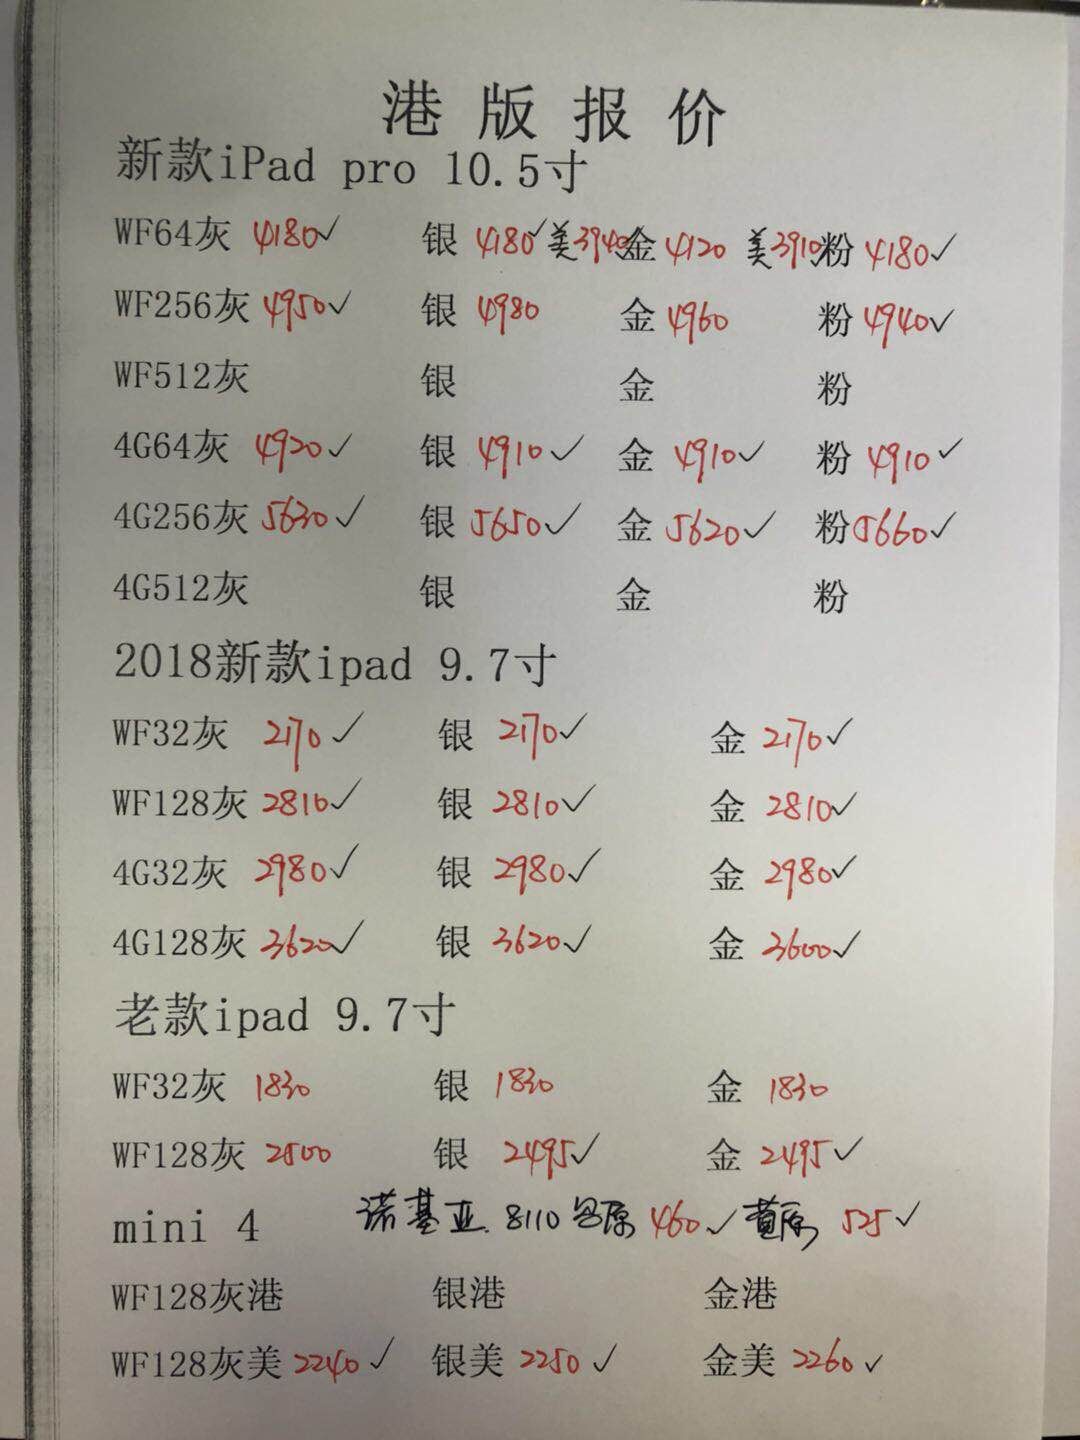 港版报价
新款iPad pro 10.5寸
WF64灰 4180✓ 银 4180✓ 美3940 金 4120 美3910 粉 4180✓
WF256灰 4950✓ 银 4980 金 4960 粉 4940✓
WF512灰 银 金 粉
4G64灰 4920✓ 银 4910✓ 金 4910✓ 粉 4910✓
4G256灰 5630✓ 银 5650✓ 金 5620✓ 粉 5660✓
4G512灰 银 金 粉
2018新款ipad 9.7寸
WF32灰 2170✓ 银 2170✓ 金 2170✓
WF128灰 2810✓ 银 2810✓ 金 2810✓
4G32灰 2980✓ 银 2980✓ 金 2980✓
4G128灰 3620✓ 银 3620✓ 金 3600✓
老款ipad 9.7寸
WF32灰 1830 银 1830 金 1830
WF128灰 2500 银 2495✓ 金 2495✓
mini 4 诺基亚 8110 原 460✓ 黄原 525✓
WF128灰港 银港 金港
WF128灰美 2240✓ 银美 2250✓ 金美 2260✓